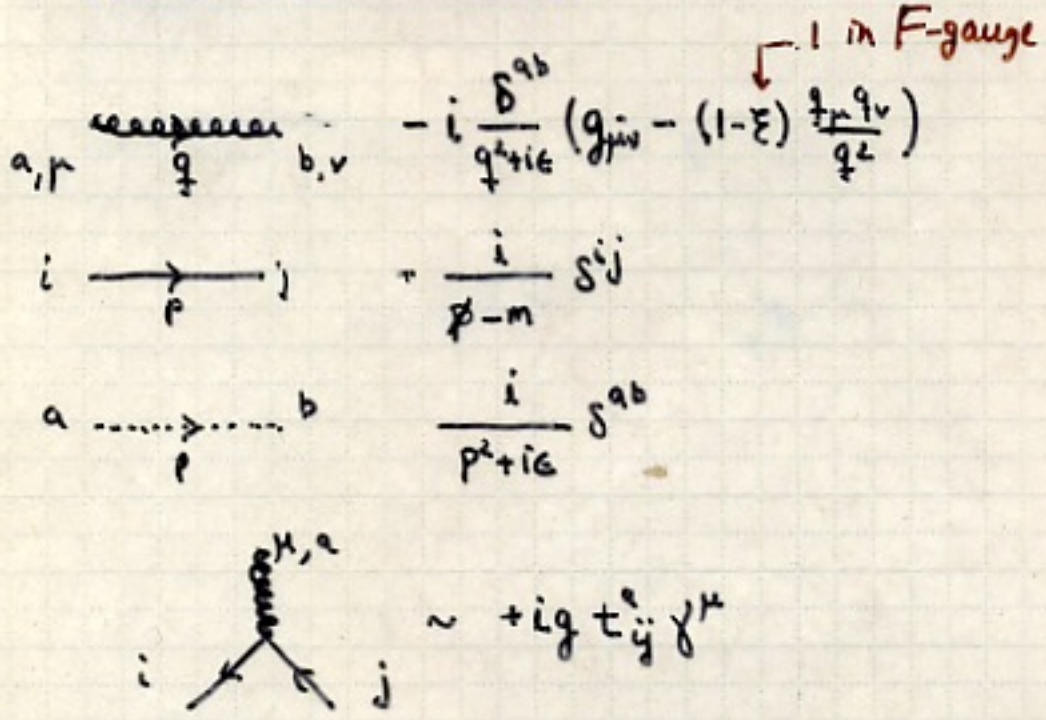 1 in F-gauge
a, μ q b, ν - i δ^{ab}/(q²+iε) (g_{μν} - (1-ξ) q_μ q_ν / q²)
i p j i/(p̸-m) δ^{ij}
a p b i/(p²+iε) δ^{ab}
μ, a
i j ~ +ig t^a_{ij} γ^μ